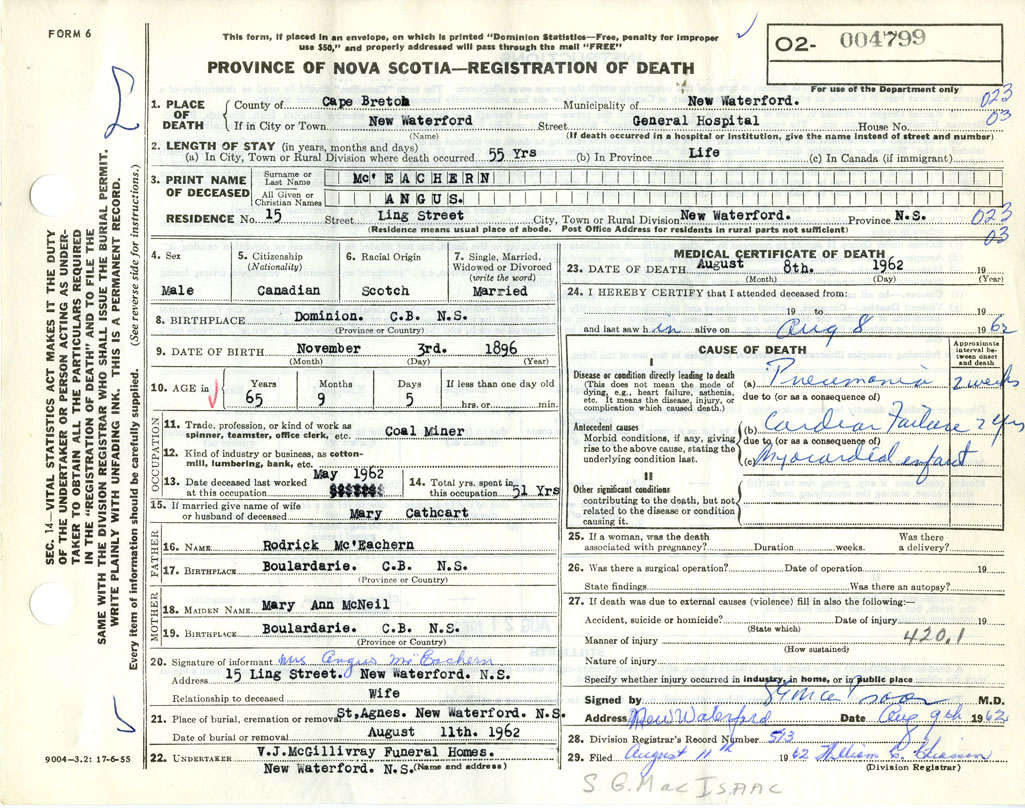 FORM 6
This form, if placed in an envelope, on which is printed "Dominion Statistics—Free, penalty for improper
use $50," and properly addressed will pass through the mail "FREE"
PROVINCE OF NOVA SCOTIA—REGISTRATION OF DEATH
O2- 004799
For use of the Department only
023
03
1. PLACE OF DEATH
County of Cape Breton Municipality of New Waterford.
If in City or Town New Waterford Street General Hospital House No.
(Name) (If death occurred in a hospital or institution, give the name instead of street and number)
2. LENGTH OF STAY (in years, months and days)
(a) In City, Town or Rural Division where death occurred 55 Yrs (b) In Province Life (c) In Canada (if immigrant)
3. PRINT NAME OF DECEASED
Surname or Last Name Mc'EACHERN
All Given or Christian Names ANGUS.
RESIDENCE No. 15 Street Ling Street City, Town or Rural Division New Waterford. Province N.S.
(Residence means usual place of abode. Post Office Address for residents in rural parts not sufficient)
023
03
4. Sex Male
5. Citizenship (Nationality) Canadian
6. Racial Origin Scotch
7. Single, Married, Widowed or Divorced (write the word) Married
8. BIRTHPLACE Dominion. C.B. N.S.
(Province or Country)
9. DATE OF BIRTH November 3rd. 1896
(Month) (Day) (Year)
10. AGE in Years 65 Months 9 Days 5 If less than one day old hrs. or min.
OCCUPATION
11. Trade, profession, or kind of work as spinner, teamster, office clerk, etc. Coal Miner
12. Kind of industry or business, as cotton-mill, lumbering, bank, etc.
13. Date deceased last worked at this occupation May 1962
14. Total yrs. spent in this occupation 51 Yrs
15. If married give name of wife or husband of deceased Mary Cathcart
FATHER
16. NAME Rodrick Mc'Eachern
17. BIRTHPLACE Boulardarie. C.B. N.S.
(Province or Country)
MOTHER
18. MAIDEN NAME Mary Ann McNeil
19. BIRTHPLACE Boulardarie. C.B. N.S.
(Province or Country)
20. Signature of informant Mrs Angus Mc'Eachern
Address 15 Ling Street. New Waterford. N.S.
Relationship to deceased Wife
21. Place of burial, cremation or removal St,Agnes. New Waterford. N.S.
Date of burial or removal August 11th. 1962
22. UNDERTAKER V.J.McGillivray Funeral Homes.
New Waterford. N.S. (Name and address)
MEDICAL CERTIFICATE OF DEATH
23. DATE OF DEATH August 8th. 1962 19
(Month) (Day) (Year)
24. I HEREBY CERTIFY that I attended deceased from:
19 to 19
and last saw him alive on Aug 8 1962
CAUSE OF DEATH
Approximate interval between onset and death
I
Disease or condition directly leading to death
(This does not mean the mode of dying, e.g., heart failure, asthenia, etc. It means the disease, injury, or complication which caused death.)
(a) Pneumonia 2 weeks
due to (or as a consequence of)
Antecedent causes
Morbid conditions, if any, giving rise to the above cause, stating the underlying condition last.
(b) Cardiac Failure 2 yrs
due to (or as a consequence of)
(c) Myocardial enfart
II
Other significant conditions
contributing to the death, but not related to the disease or condition causing it.
25. If a woman, was the death associated with pregnancy? Duration weeks. Was there a delivery?
26. Was there a surgical operation? Date of operation 19
State findings Was there an autopsy?
27. If death was due to external causes (violence) fill in also the following:—
Accident, suicide or homicide? Date of injury 19
(State which)
Manner of injury 420.1
(How sustained)
Nature of injury
Specify whether injury occurred in industry, in home, or in public place
Signed by M.D.
Address New Waterford Date Aug 9th 1962
28. Division Registrar's Record Number 513
29. Filed August 11th 1962 William
(Division Registrar)
S. G. MacISAAC
SEC. 14—VITAL STATISTICS ACT MAKES IT THE DUTY
OF THE UNDERTAKER OR PERSON ACTING AS UNDER-
TAKER TO OBTAIN ALL THE PARTICULARS REQUIRED
IN THE "REGISTRATION OF DEATH" AND TO FILE THE
SAME WITH THE DIVISION REGISTRAR WHO SHALL ISSUE THE BURIAL PERMIT.
WRITE PLAINLY WITH UNFADING INK. THIS IS A PERMANENT RECORD.
Every item of information should be carefully supplied. (See reverse side for instructions.)
9004-3.2: 17-6-55